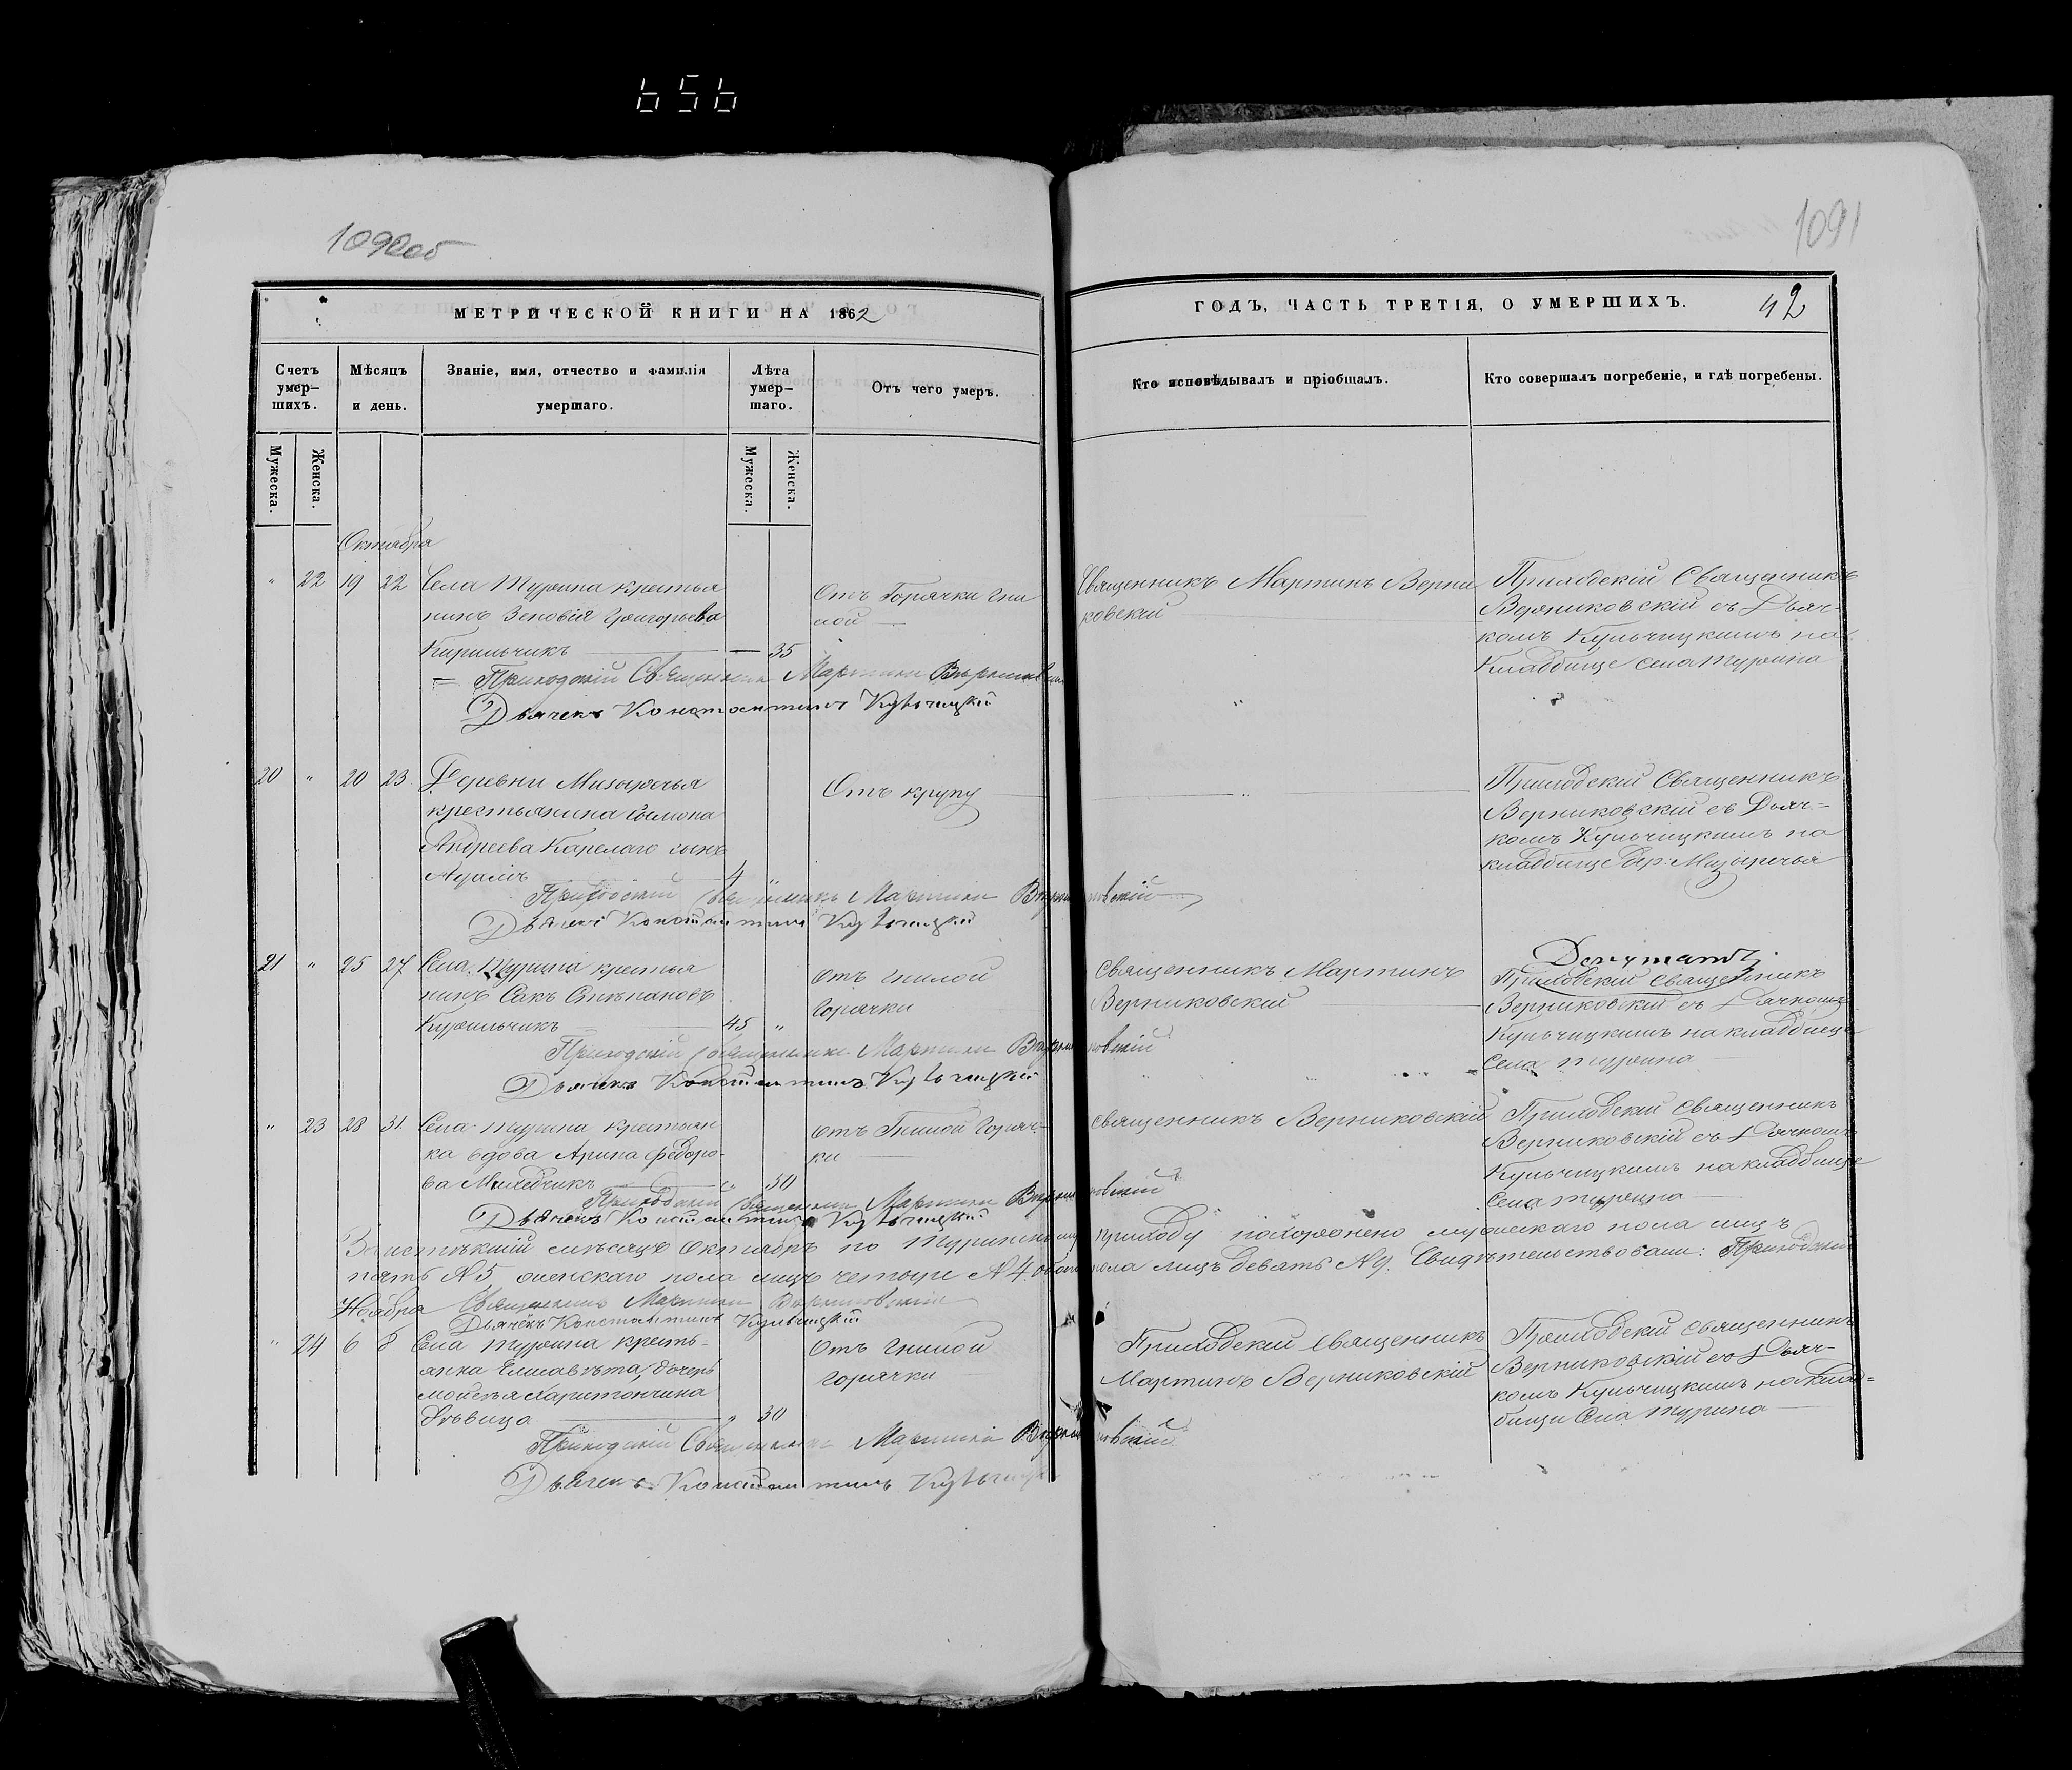 656
1090об
1091
МЕТРИЧЕСКОЙ КНИГИ НА 1862
ГОДЪ, ЧАСТЬ ТРЕТІЯ, О УМЕРШИХЪ.
42
Счетъ умер-шихъ.
Мѣсяцъ и день.
Званіе, имя, отчество и фамилія умершаго.
Лѣта умер-шаго.
Отъ чего умеръ.
Кто исповѣдывалъ и пріобщалъ.
Кто совершалъ погребеніе, и гдѣ погребены.
Мужеска.
Женска.
Мужеска.
Женска.
Октября
" 22 19 22 Села Турина крестья
нинъ Зеновія Григорьева
Кирильчикъ — 35
Отъ Горячки гни
лой
Священникъ Мартинъ Верни
ковскій
Приходскій Священникъ
Верниковскій съ Дьяч-
комъ Кульчицкимъ на
Кладбище села Турина
Приходскій Священникъ Мартинъ Верниковскій
Дьячекъ Константинъ Кульчицкій
20 " 20 23 Деревни Мизыречья
крестьянина Сымона
Андреева Карелаго сынъ
4 "
Отъ крупу
"
Приходскій Священникъ
Верниковскій съ Дьяч-
комъ Кульчицкимъ на
кладбище Дер: Мизыречья
Приходскій Священникъ Мартинъ Верниковскій
Дьячекъ Константинъ Кульчицкій
21 " 25 27 Села Турина крестья
нинъ Сакъ Степановъ
Кирильчикъ 45 "
Отъ гнилой
горячки
Священникъ Мартинъ
Верниковскій
Приходскій Священникъ
Верниковскій съ Дячкомъ
Кульчицкимъ на кладбище
Села Турина
Приходскій Священникъ Мартинъ Верниковскій
Дьячекъ Константинъ Кульчицкій
" 23 28 31 Села Турина крестьян
ка вдова Арина Федоро-
ва " 50
Отъ Гнилой Горяч-
ки
Священникъ Верниковскій
Приходскій Священникъ
Верниковскій съ Дячкомъ
Кульчицкимъ на кладбище
Села Турина
Приходскій Священникъ Мартинъ Верниковскій
Дьячекъ Константинъ Кульчицкій
За истекшій мѣсяцъ Октябрь по Туринскому приходу похоронено мужескаго пола лицъ
пять № 5, женскаго пола лицъ четыре № 4. обоего пола лицъ девять № 9. Свидѣтельствовали: Приходскій
Священникъ Мартинъ Верниковскій
Дьячекъ Константинъ Кульчицкій
Ноября
" 24 6 8 Села Турина кресть-
янка Елисавета, дочерь
Моисея Харитончика
дѣвица " 30
Отъ гнилой
горячки
Приходскій Священникъ
Мартинъ Верниковскій
Приходскій Священникъ
Верниковскій съ Дьяч-
комъ Кульчицкимъ на Клад-
бищи Села Турина
Приходскій Священникъ Мартинъ Верниковскій
Дьячекъ Константинъ Кульчицкій